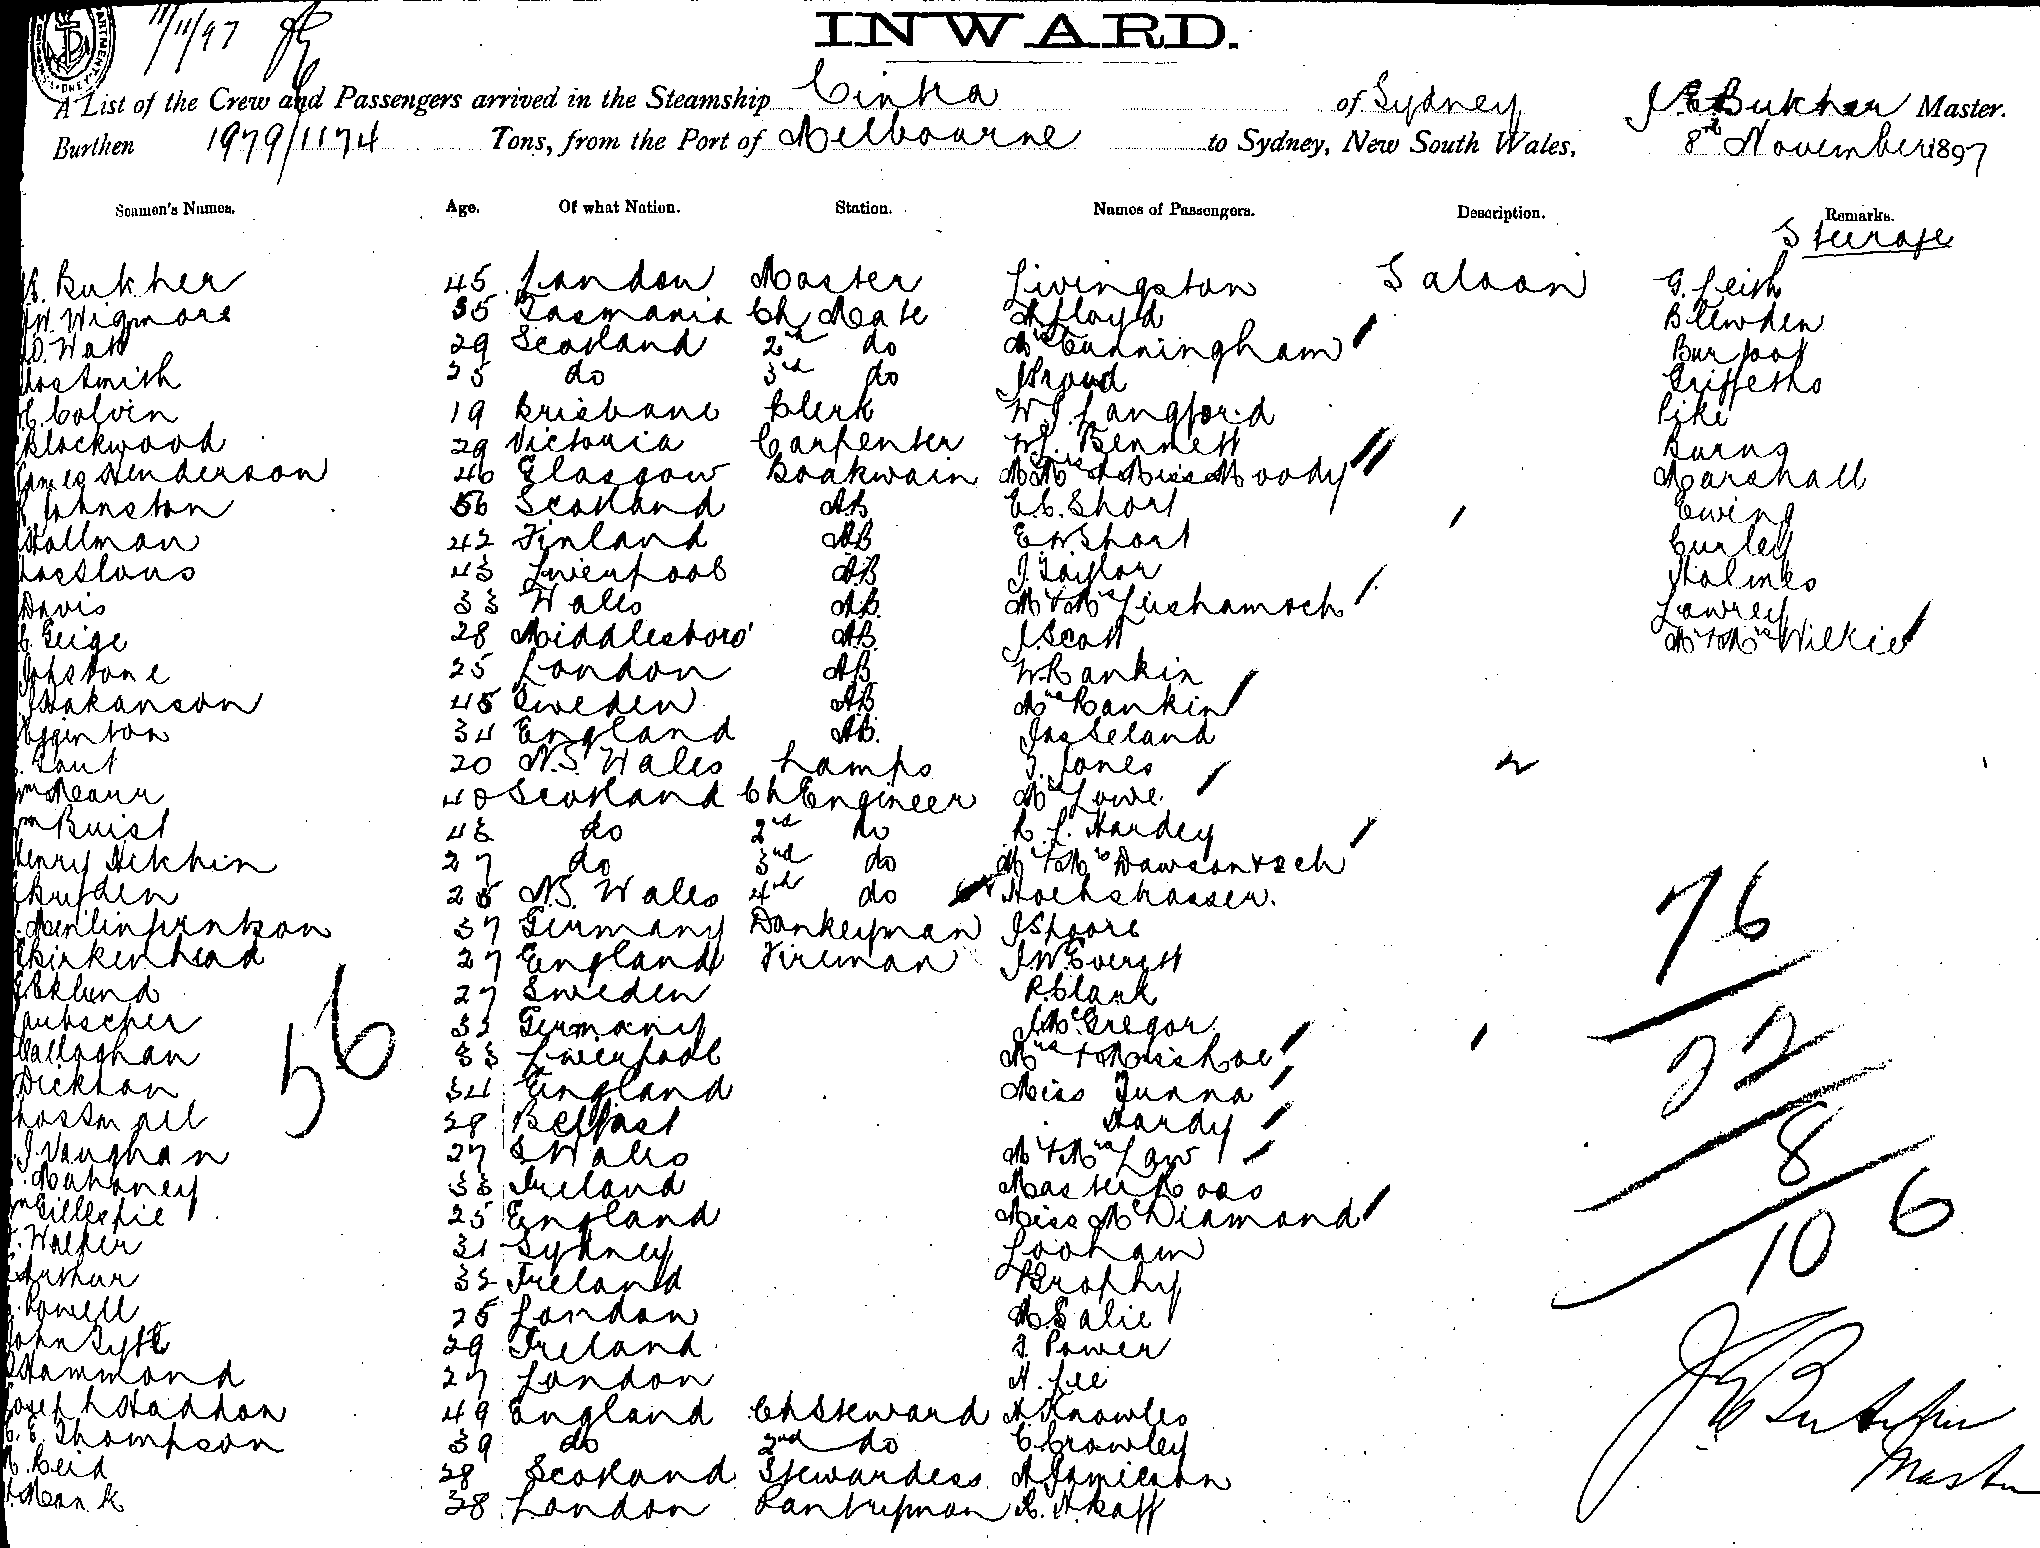 11/11/97
INWARD.
A List of the Crew and Passengers arrived in the Steamship Cintra of Sydney J. E. Butcher Master.
Burthen 1979/1174 Tons, from the Port of Melbourne to Sydney, New South Wales, 8th November 1897
Seamen's Names. Age. Of what Nation. Station. Names of Passengers. Description. Remarks.
Steerage
Butcher 45 London Master Livingston Saloon G. Leish
W. Wigmore 35 Tasmania Ch Mate A Lloyd Blewden
Watt 29 Scotland 2nd do Mrs Cunningham
Smith 25 do 3rd do J Stroud Griffeths
Colvin 19 Brisbane Clerk W. J. Langford Pike
Blackwood 29 Victoria Carpenter W. L. Bennett Burns
James Henderson 46 Glasgow Boatswain Mr Mrs & Miss Moody Marshall
Johnston 56 Scotland AB E. C. Short Ewing
Hallman 42 Finland AB E W Short Curley
43 Liverpool AB J. Taylor Holmes
Davis 33 Wales AB. Mr & Mrs Lawrey
Geige 28 Middlesboro' AB. J. Scott Mr & Mrs Wilkie
Johstone 25 London AB W. Rankin
Hakanson 45 Sweden AB Mrs Rankin
Egginton 34 England AB. Jas Leland
Gout 20 N.S. Wales Lamps J. Jones
40 Scotland Ch Engineer Mrs Lowe
Wm Buist 43 do 2nd do R. L. Hardey
Henry Aitchin 27 do 3rd do Mr & Mrs Dawson & 2 ch
Bryden 25 N.S. Wales 4th do Hochstrasser.
37 Germany Donkeyman J Spoore
Birkenhead 27 England Fireman J. W. Everett
Eklund 27 Sweden R. Clark
33 Germany J McGregor
Callaghan 33 Liverpool Mrs & Miss Roe
Dickson 34 England Miss Gunna
28 Belfast Hardy
J. Vaughan 27 S Wales Mr & Mrs Law
Mahoney 33 Ireland Master Roos
Wm Gillespie 25 England Miss McDiamond
Walker 31 Sydney Looham
Arthur 33 Ireland Brophy
Powell 25 London A Salie
John 29 Ireland J. Power
Hammond 27 London A. Lee
Joseph Haddon 49 England Ch Steward A. Knowles
C. E. Thompson 39 do 2nd do C Crowley
Reid 28 Scotland Stewardess A Jamieson
28 London Pantryman
56
76
22
8
106
J E Butcher
Master